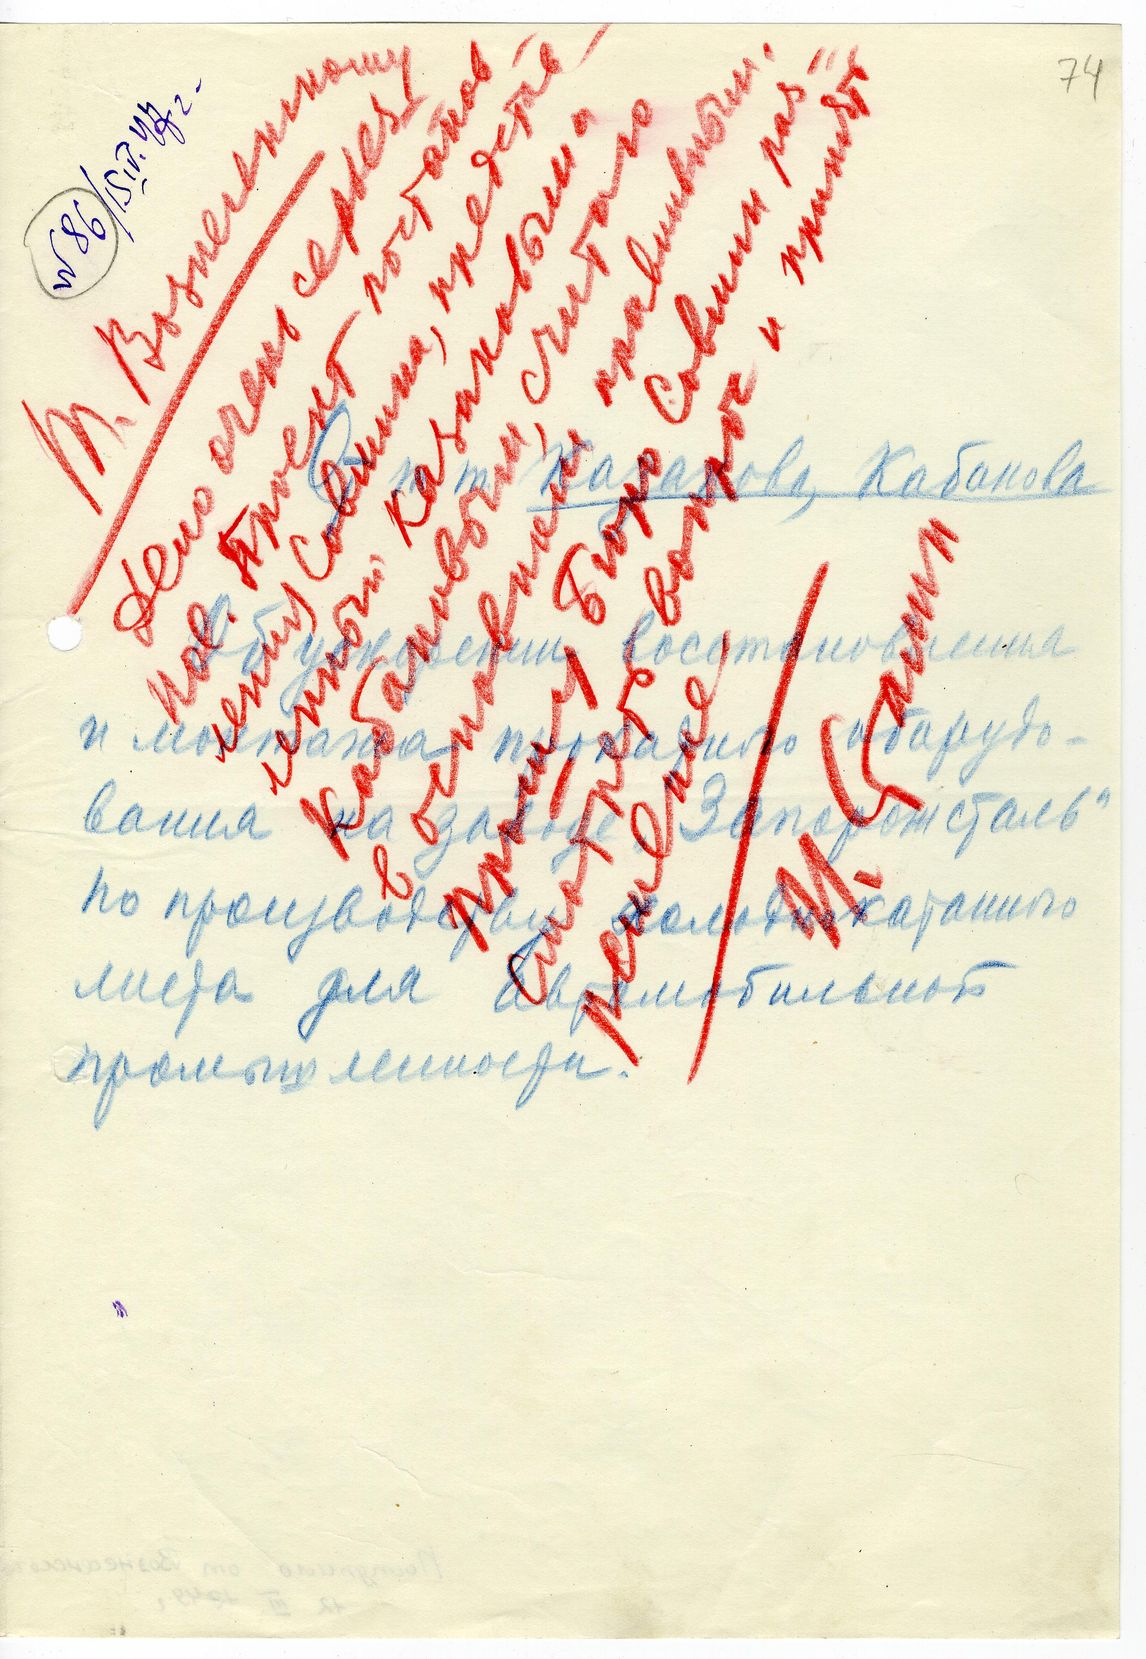 74
№ 86/15.IV.47 г.
Т. Вознесенскому
Дело очень серьез-
ное. Проект постанов-
ления Совмина, представ-
ленный Казаковым и
Кабановым, считаю
в основном правильным.
Бюро Совмина раз-
смотреть вопрос и принять
решение
И. Сталин
От т.т. Казакова, Кабанова
Об ускорении восстановления
и монтажа прокатного оборудо-
вания на заводе „Запорожсталь"
по производству холоднокатанного
листа для автомобильной
промышленности.
Поступило от Вознесенского
12 III 1949 г.